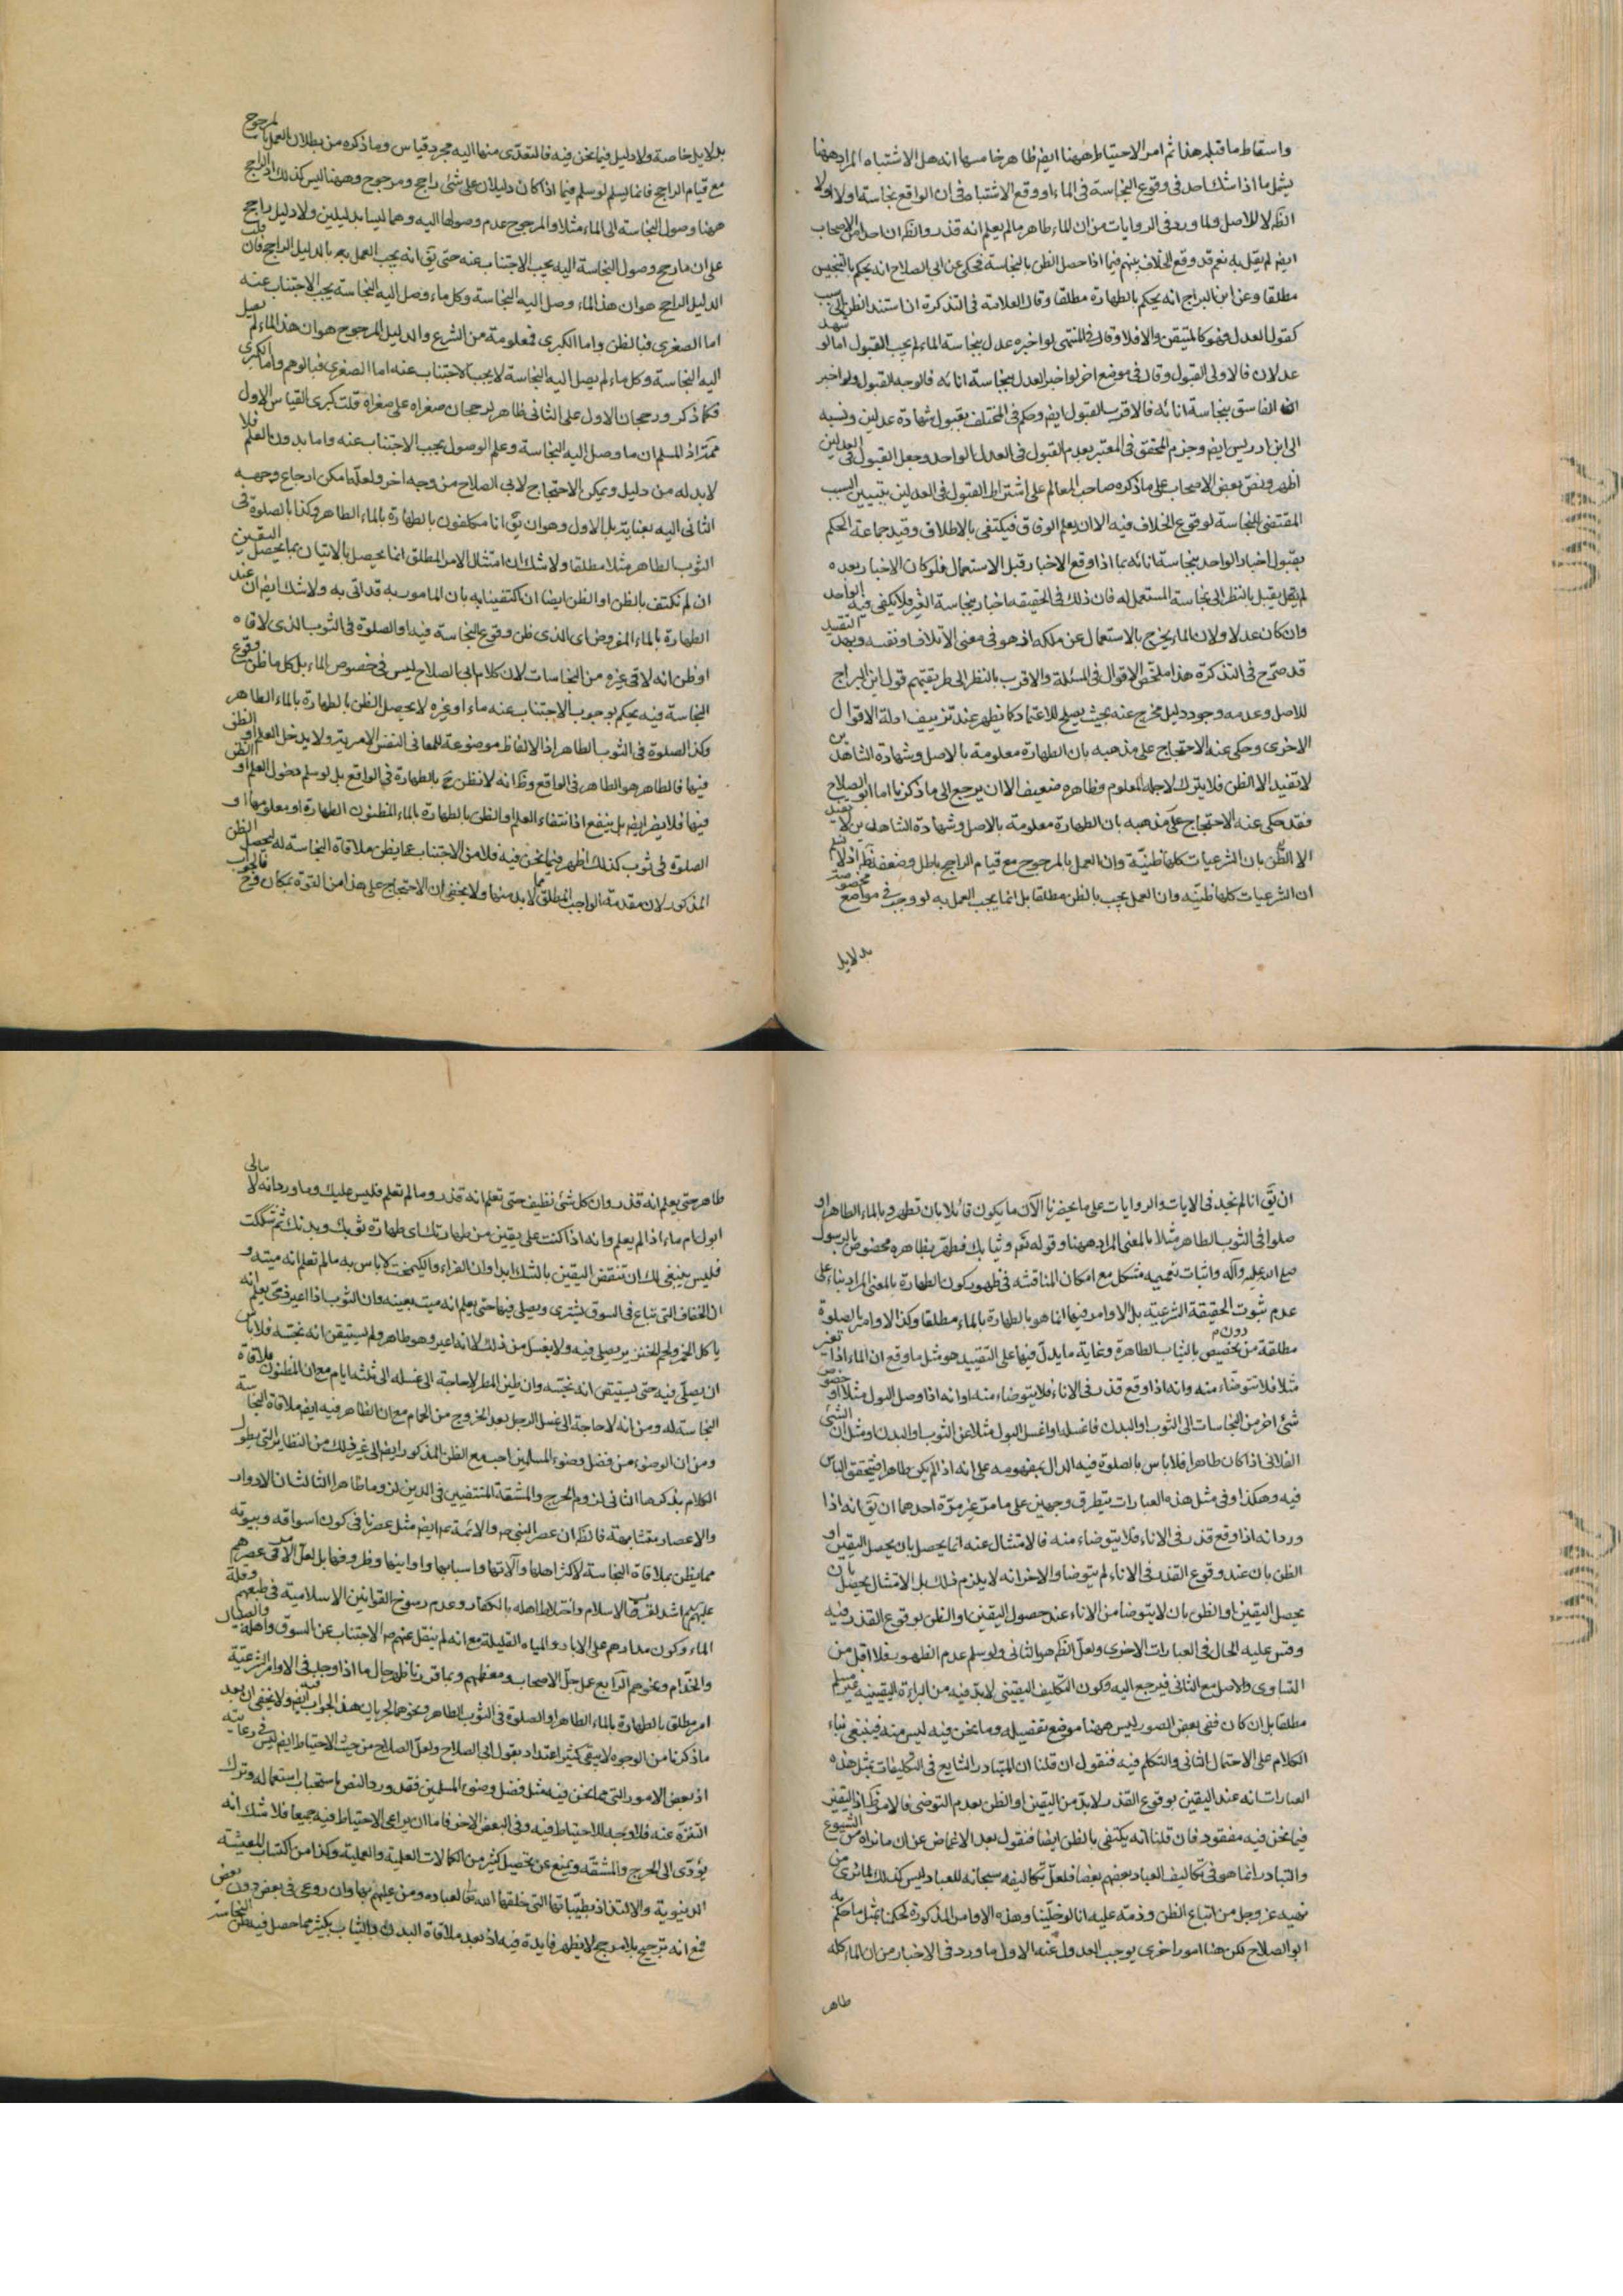 واسقاط ما قبله هذا ثم امر الاحتياط ههنا ايض ظاهر خامسها انه هل الاشتباه المراد ههنا
يشمل ما اذا شك احد في وقوع النجاسة في الماء او وقع الاشتباه في ان الواقع نجاسة اولا اولا
الظ لا للاصل ولما ورد في الروايات من ان الماء طاهر ما لم يعلم انه قذر والظ ان احدا من الاصحاب
ايض لم يقل به نعم قد وقع الخلاف بينهم فيما اذا حصل الظن بالنجاسة فحكى عن ابي الصلاح انه يحكم بالتنجيس
مطلقا وعن ابن البراج انه يحكم بالطهارة مطلقا وقال العلامة في التذكرة ان استند الظن الى سبب
كقول العدل فهو كالمتيقن والا فلا وقال في المنتهى لو اخبره عدل بنجاسة الماء لم يجب القبول اما لو شهد
عدلان فالاولى القبول وقال في موضع اخر لو اخبر العدل بنجاسة انائه فالوجه القبول ولو اخبر
الفاسق بنجاسة انائه فالاقرب القبول ايض وحكم في المختلف بقبول شهادة عدلين ونسبه
الى ابن ادريس ايض وجزم المحقق في المعتبر بعدم القبول في العدل الواحد وجعل القبول في العدلين
اظهر ونص بعض الاصحاب على ما ذكره صاحب المعالم على اشتراط القبول في العدلين بتبيين السبب
المقتضي للنجاسة لوقوع الخلاف فيه الا ان يعلم الوفاق فيكتفى بالاطلاق وقيد جماعة الحكم
بقبول اخبار الواحد بنجاسة انائه بما اذا وقع الاخبار قبل الاستعمال فلو كان الاخبار بعده
لم يقبل بالنظر الى نجاسة المستعمل له فان ذلك في الحقيقة اخبار بنجاسة الغير فلا يكفي فيه الواحد
وان كان عدلا ولان الماء يخرج بالاستعمال عن ملكه اذ هو في معنى الاتلاف او نفسه وبهذا التقييد
قد صرح في التذكرة هذا ملخص الاقوال في المسئلة والاقرب بالنظر الى طريقتهم قول ابن البراج
للاصل وعدمه وجود دليل مخرج عنه بحيث يصلح للاعتماد كما يظهر عند تزييف ادلة الاقوال
الاخرى وحكى عنه الاحتجاج على مذهبه بان الطهارة معلومة بالاصل وشهادة الشاهدين
لا تفيد الا الظن فلا يترك لاجله المعلوم وظاهره ضعيف الا ان يرجع الى ما ذكرنا اما ابو الصلاح
فقد حكى عنه الاحتجاج على مذهبه بان الطهارة معلومة بالاصل وشهادة الشاهدين لا تفيد
الا الظن بان الشرعيات كلها ظنية وان العمل بالمرجوح مع قيام الراجح باطل وضعفه ظ اذ لا نسلم
ان الشرعيات كلها ظنيه وان العمل يجب بالظن مطلقا بل انما يجب العمل به لو وجب في مواضع مخصوصة
بدلايل
بدلايل خاصة ولا دليل فيما نحن فيه فالتعدى منها اليه مجرد قياس وما ذكره من بطلان العمل بالمرجوح
مع قيام الراجح فانما يسلم لو سلم فيما اذا كان دليلان على شئ راجح ومرجوح وههنا ليس كذلك اذ الراجح
ههنا وصول النجاسة الى الماء مثلا والمرجوح عدم وصولها اليه وهما ليسا بدليلين ولا دليل راجح
على ان ما رجح وصول النجاسة اليه يجب الاجتناب عنه حتى يق انه يجب العمل به بالدليل الراجح فان قلت
الدليل الراجح هو ان هذا الماء وصل اليه النجاسة وكل ماء وصل اليه النجاسة يجب الاجتناب عنه
اما الصغرى فبالظن واما الكبرى فمعلومة من الشرع والدليل المرجوح هو ان هذا الماء لم يصل
اليه النجاسة وكل ماء لم يصل اليه النجاسة لا يجب الاجتناب عنه اما الصغرى فبالوهم واما الكبرى
فكما ذكر ورجحان الاول على الثاني ظاهر لرجحان صغراه على صغراه قلت كبرى القياس الاول
ممنوعة اذ المسلم ان ما وصل اليه النجاسة وعلم الوصول يجب الاجتناب عنه واما بدون العلم فلا
لا بد له من دليل ويمكن الاحتجاج لابي الصلاح من وجه اخر ولعله امكن ارجاع وجهه
الثاني اليه بعناية بل الاول وهو ان يق انا مكلفون بالطهارة بالماء الطاهر وكذا بالصلوة في
الثوب الطاهر مثلا مطلقا ولا شك ان امتثال الامر المطلق انما يحصل بالاتيان بما يحصل اليقين
ان لم نكتف بالظن او الظن ايضا ان اكتفينا به بان المامور به قد اتى به ولا شك ايض ان عند
الطهارة بالماء المفروض اي الذي ظن وقوع النجاسة فيه او الصلوة في الثوب الذي لاقاه
او ظن انه لاقى غيره من النجاسات لان كلام ابي الصلاح ليس في خصوص الماء بل كل ما ظن وقوع
النجاسة فيه يحكم بوجوب الاجتناب عنه ماء او غيره لا يحصل الظن بالطهارة بالماء الطاهر
وكذا الصلوة في الثوب الطاهر اذ الالفاظ موضوعة للمعاني النفس الامرية ولا يدخل العلم او الظن
فيها فالطاهر هو الطاهر في الواقع وظ انه لا نظن ح بالطهارة في الواقع بل لو سلم دخول العلم او الظن
فيها فلا يضر ايض بل ينفع اذ انتفاء العلم او الظن بالطهارة بالماء المظنون الطهارة او معلومها او
الصلوة في ثوب كذلك اظهر فيما نحن فيه فلا بد من الاجتناب عما يظن ملاقاة النجاسة له ليحصل الظن
المذكور لان مقدمة الواجب المطلق لا بد منها ولا يخفى ان الاحتجاج على هذا من القوة بمكان فوق فالجواب
ان يق انا لم نجد في الايات والروايات على ما يحضرنا الآن ما يكون قائلا بان تطهروا بالماء الطاهر او
صلوا في الثوب الطاهر مثلا بالمعنى المراد ههنا وقوله تعم وثيابك فطهر بظاهره مخصوص بالرسول
صلى الله عليه وآله واثبات تعميمه مشكل مع امكان المناقشة في ظهور كون الطهارة بالمعنى المراد بناء على
عدم ثبوت الحقيقة الشرعية بل الاوامر فيها انما هو بالطهارة بالماء مطلقا وكذا الاوامر بالصلوة
مطلقة من دون تخصيص بالثياب الطاهرة وغاية ما يدل فيها على التقييد هو مثل ما وقع ان الماء اذا تغير
مثلا فلا تتوضاء منه وانه اذا وقع قذر في الاناء فلا يتوضاء منه او انه اذا وصل البول مثلا او خصوص
شئ اخر من النجاسات الى الثوب او البدن فاغسله او اغسل البول مثلا عن الثوب او البدن ومثل ان الشئ
الفلاني اذا كان طاهرا فلا باس بالصلوة فيه الدال بمفهومه على انه اذا لم يكن طاهرا فيتحقق الباس
فيه وهكذا وفي مثل هذه العبارات يتطرق وجهين على ما مر غير مرة احدهما ان يق انه اذا
ورد انه اذا وقع قذر في الاناء فلا يتوضاء منه فالامتثال عنه انما يحصل بان يحصل اليقين او
الظن بان عند وقوع القذر في الاناء لم يتوضا والاخر انه لا يلزم ذلك بل الامتثال يحصل بان
يحصل اليقين او الظن بان لا يتوضا من الاناء عند حصول اليقين او الظن بوقوع القذر فيه
وقس عليه الحال في العبارات الاخرى ولعل الظ هو الثاني ولو سلم عدم الظهور فلا اقل من
التساوي والاصل مع الثاني فيرجع اليه وكون التكليف اليقيني لا بد فيه من البراءة اليقينية غير مسلم
مطلقا بل ان كان ففي بعض الصور ليس ههنا موضع تفصيله وما نحن فيه ليس منه فينبغي بناء
الكلام على الاحتمال الثاني والتكلم فيه فنقول ان قلنا ان المتبادر الشايع في التكليفات بمثل هذه
العبارات انه عند اليقين بوقوع القذر لا بد من اليقين او الظن بعدم التوضي فالامر ظ اذ اليقين
فيما نحن فيه مفقود فان قلنا انه يكتفي بالظن ايضا فنقول بعد الاغماض عن ان ما نراه من الشيوع
والتبادر انما هو في تكاليف العباد بعضهم بعضا فلعل تكاليفه سبحانه للعباد ليس كذلك لما نرى من
نهيه عز وجل من اتباع الظن وذمه عليه انا لو خلينا وهذه الاوامر المذكورة لحكمنا بمثل ما حكم به
ابو الصلاح لكن هنا امورا اخرى يوجب العدول عنه الاول ما ورد في الاخبار من ان الماء كله
طاهر
طاهر حتى يعلم انه قذر وان كل شئ نظيف حتى تعلم انه قذر وما لم تعلم فليس عليك وما ورد انه لا ابالي
ابول ام ماء اذا لم يعلم وانه اذا كنت على يقين من طهارتك اي طهارة ثوبك وبدنك ثم شككت
فليس ينبغي لك ان تنقض اليقين بالشك ابدا وان الفراء والكيمخت لا باس به ما لم تعلم انه ميته و
ان الخفاف التي تباع في السوق يشترى ويصلى فيها حتى يعلم انه ميت بعينه وان الثوب اذا اعير ذمي يعلم انه
ياكل الخمر ولحم الخنزير يصلى فيه ولا يغسل من ذلك لانه اعير وهو طاهر ولم يستيقن انه نجسه فلا باس
ان يصلى فيه حتى يستيقن انه نجسه وان طين المطر لا حاجة الى غسله الى ثلثة ايام مع ان المظنون ملاقاة
النجاسة له ومن انه لا حاجة الى غسل الرجل بعد الخروج من الحمام مع ان الظاهر فيه ايض ملاقاة النجاسة
ومن ان الوضوء من فضل وضوء المسلمين احب مع الظن المذكور ايض الى غير ذلك من النظائر التي يطول
الكلام بذكرها الثاني لزوم الحرج والمشقة المنتفيين في الدين لزوما ظاهرا الثالث ان الادوار
والاعصار متشابهة فالظ ان عصر النبي ص والائمة ع ايض مثل عصرنا في كون اسواقه وبيوته
مما يظن بملاقاة النجاسة لاكثر اهلها وآلاتها واسبابها واوانيها وظروفها بل لعل الامر في عصرهم
عليهم السلم اشد لقرب الاسلام واختلاط اهله بالكفار وعدم رسوخ القوانين الاسلامية في طبعهم وقلة
الماء وكون مدارهم على الابار والمياه القليلة مع انه لم ينقل عنهم ص الاجتناب عن السوق واهله والصبيان
والخدام ونحوهم الرابع عمل جل الاصحاب ومعظمهم وبما قررنا ظهر حال ما اذا وجب في الاوامر الشرعية
امر مطلق بالطهارة بالماء الطاهر او الصلوة في الثوب الطاهر ونحوهما لجريان هذا الجواب فيه ايض ولا يخفى ان بعد
ما ذكرنا من الوجوه لا يبقى كثير اعتداد بقول ابي الصلاح ولعل الصلاح من حيث الاحتياط ايض ليس في رعايته
اذ بعض الامور التي مما نحن فيه مثل فضل وضوء المسلمين فقد ورد النص باستحباب استعماله وترك
التنزه عنه فلا وجه للاحتياط فيه وفي البعض الاخر فاما ان يراعى الاحتياط فيه جميعا فلا شك انه
يؤدى الى الحرج والمشقة ويمنع عن تحصيل كثير من الكمالات العلمية والعملية وكذا من اكتساب المعيشة
الدنيوية والالتذاذ بطيباتها التي خلقها الله تعا لعباده ومن عليهم بها وان روعى في بعض دون بعض
فمع انه ترجيح بلا مرجح لا يظهر فايدة فيه اذ بعد ملاقاة البدن والثياب بكثير مما حصل فيه ظن النجاسة